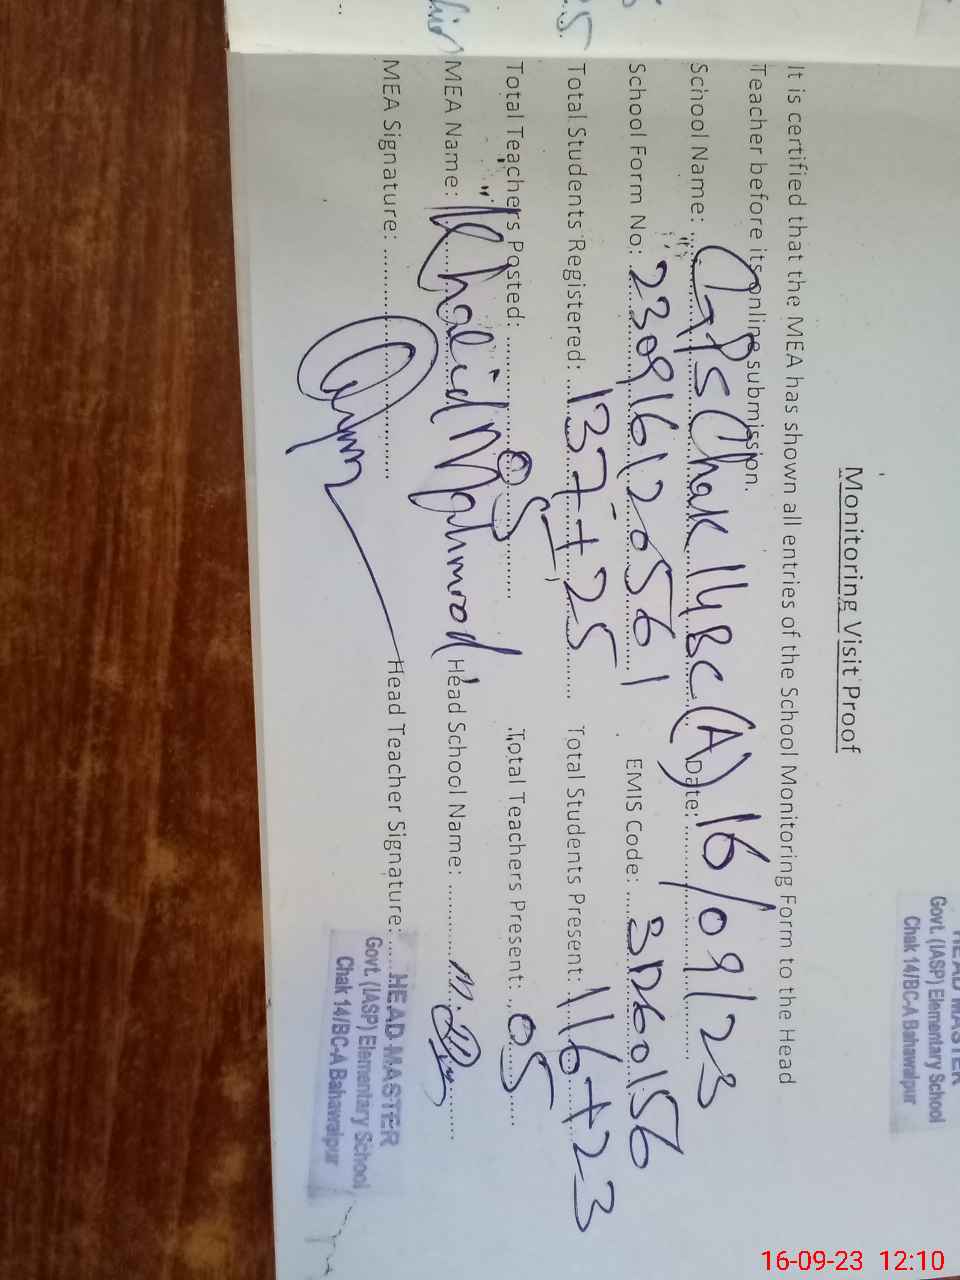 HEAD MASTER
Govt. (IASP) Elementary School
Chak 14/BC-A Bahawalpur
Monitoring Visit Proof
It is certified that the MEA has shown all entries of the School Monitoring Form to the Head
Teacher before its online submission.
School Name: GPS Chak 14BC(A) Date: 16/09/23
School Form No: 23091612056 EMIS Code:
Total Students Registered: 137+25 Total Students Present: 116+23
Total Teachers Posted: 05 Total Teachers Present: 05
MEA Name: Khalid Mahmood Head School Name:
MEA Signature: Head Teacher Signature:
HEAD MASTER
Govt. (IASP) Elementary School
Chak 14/BC-A Bahawalpur
16-09-23 12:10